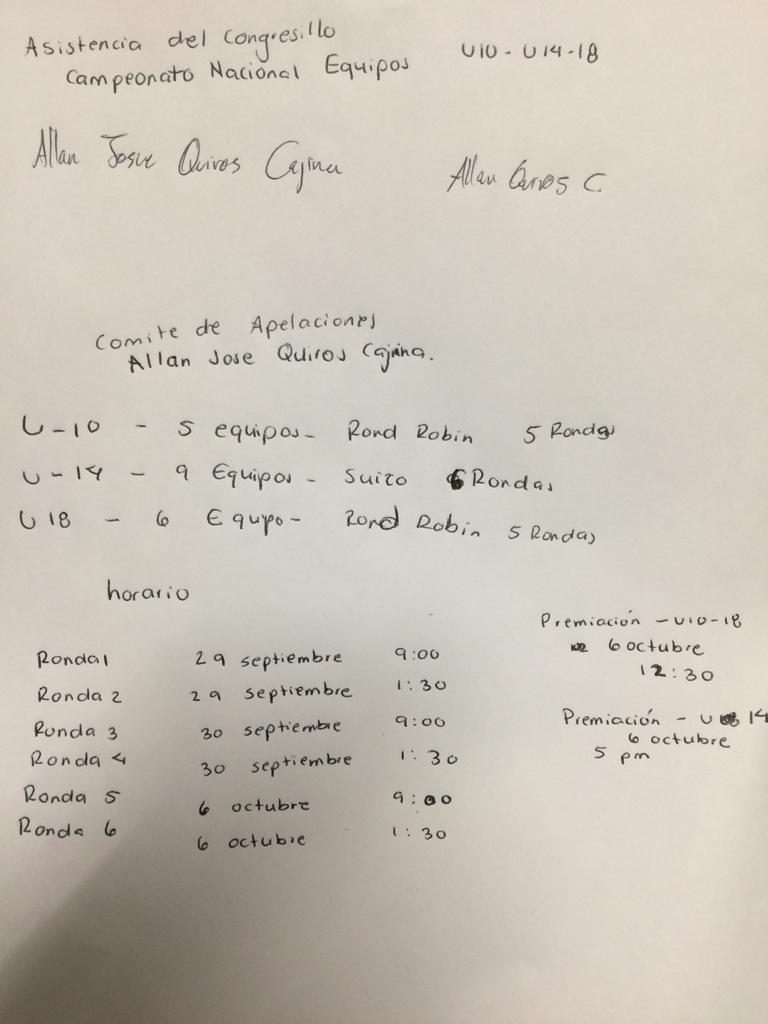 Asistencia del Congresillo
Campeonato Nacional Equipos U10 - U14-18
Allan Josue Quiros Cajina
Allan Quiros C.
Comite de Apelaciones
Allan Jose Quiros Cajina.
U-10 - 5 equipos - Rond Robin 5 Rondas
U-14 - 9 Equipos - Suizo 6 Rondas
U18 - 6 Equipo - Rond Robin 5 Rondas
horario
Ronda1 29 septiembre 9:00
Ronda 2 29 septiembre 1:30
Ronda 3 30 septiembre 9:00
Ronda 4 30 septiembre 1:30
Ronda 5 6 octubre 9:00
Ronda 6 6 octubre 1:30
Premiación - U10-18
6 octubre
12:30
Premiación - U 14
6 octubre
5 pm